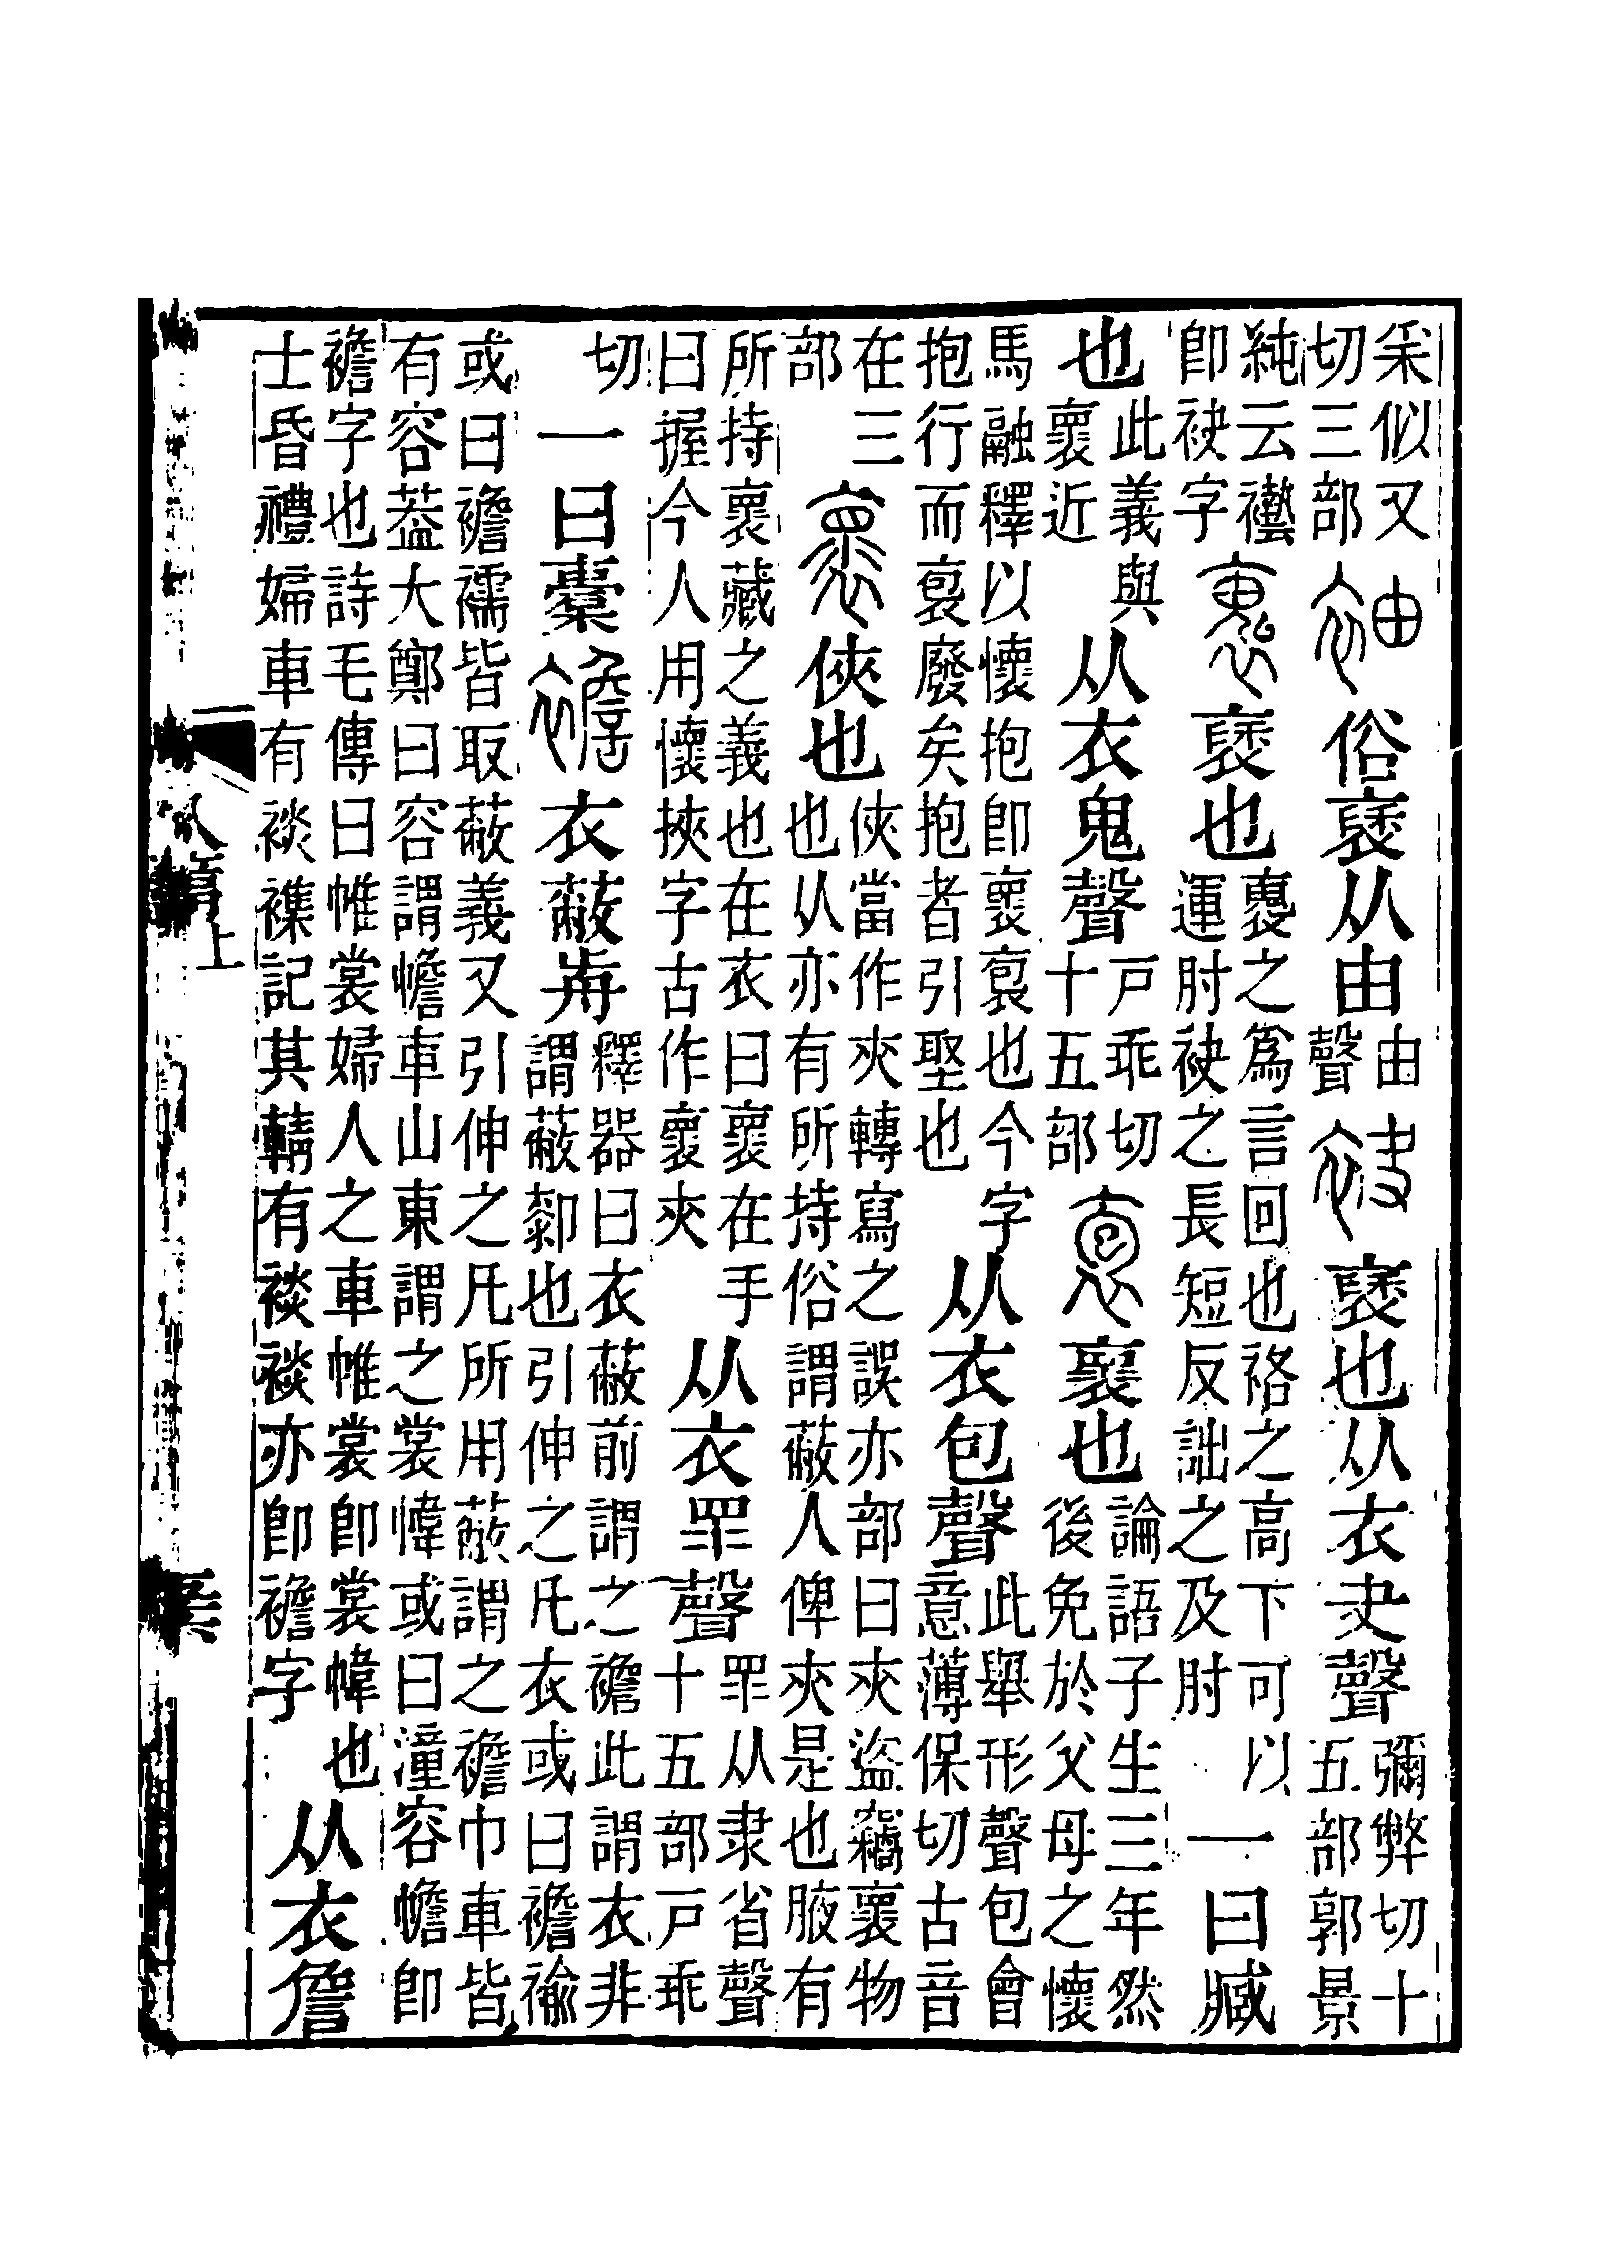 采似又切三部袖俗褎从由由聲袂褎也从衣夬聲彌弊切十五部郭景
純云褹即袂字褢褎也褱之爲言回也袼之高下可以運肘袂之長短反詘之及肘一曰臧
也此義與褱近从衣鬼聲戶乖切十五部袌褱也論語子生三年然後免於父母之懷
馬融釋以懷抱即褱袌也今字抱行而袌廢矣抱者引堅也从衣包聲此舉形聲包會意薄保切古音
在三部褱俠也俠當作夾轉寫之誤亦部曰夾盜竊褱物也从亦有所持俗謂蔽人俾夾是也腋有
所持褱藏之義也在衣曰褱在手曰握今人用懷挾字古作褱夾从衣眔聲眔从隶省聲十五部戶乖
切一曰橐襜衣蔽歬釋器曰衣蔽前謂之襜此謂衣非謂蔽厀也引伸之凡衣或曰襜褕
或曰襜襦皆取蔽義又引伸之凡所用蔽謂之襜巾車皆有容葢大鄭曰容謂幨車山東謂之裳幃或曰潼容幨即
襜字也詩毛傳曰帷裳婦人之車帷裳即裳幃也士昏禮婦車有裧襍記其輤有裧裧亦即襜字从衣詹
八篇上